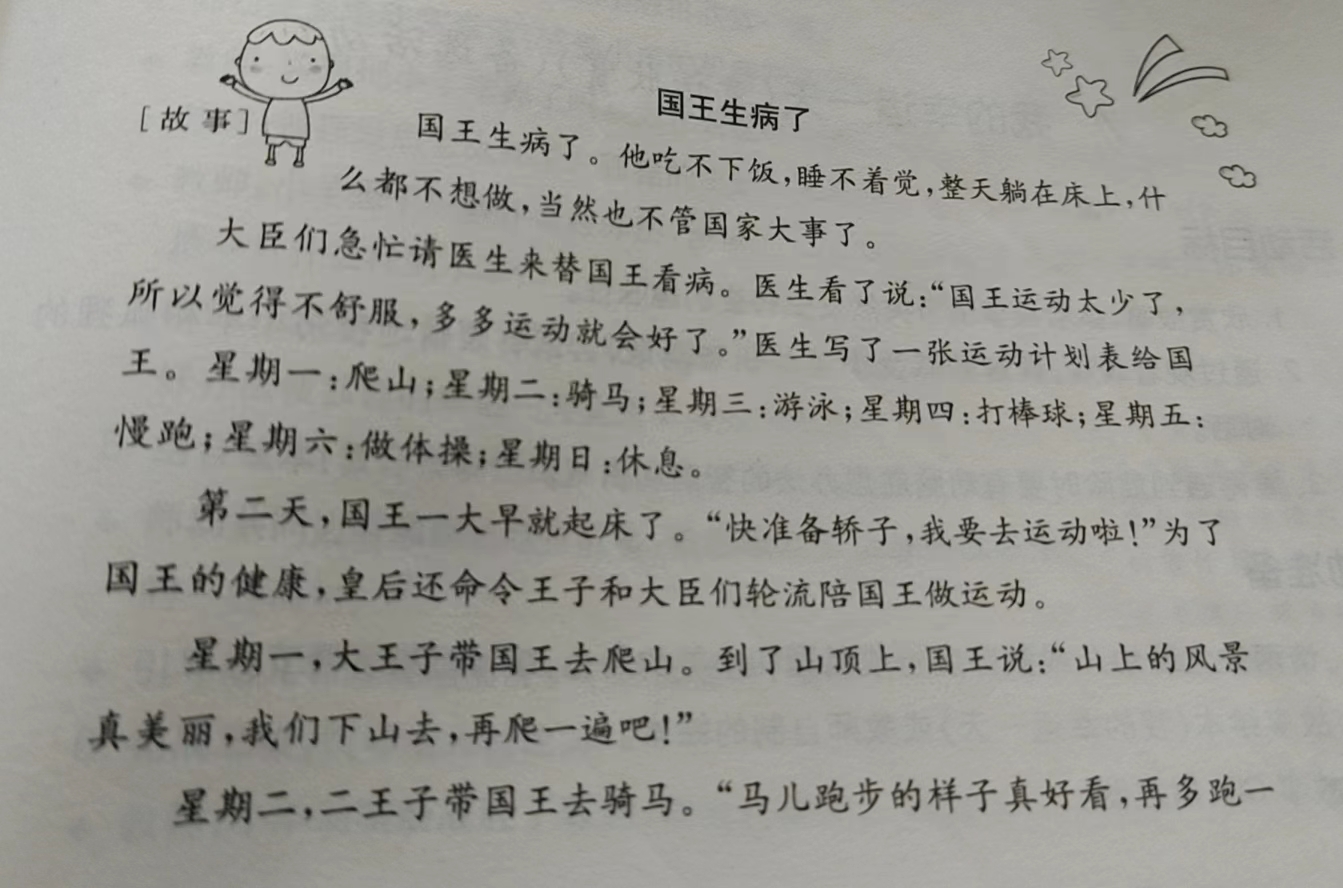 国王生病了
[故事]
国王生病了。他吃不下饭,睡不着觉,整天躺在床上,什
么都不想做,当然也不管国家大事了。
大臣们急忙请医生来替国王看病。医生看了说:“国王运动太少了,
所以觉得不舒服,多多运动就会好了。”医生写了一张运动计划表给国
王。星期一:爬山;星期二:骑马;星期三:游泳;星期四:打棒球;星期五:
慢跑;星期六:做体操;星期日:休息。
第二天,国王一大早就起床了。“快准备轿子,我要去运动啦!”为了
国王的健康,皇后还命令王子和大臣们轮流陪国王做运动。
星期一,大王子带国王去爬山。到了山顶上,国王说:“山上的风景
真美丽,我们下山去,再爬一遍吧!”
星期二,二王子带国王去骑马。“马儿跑步的样子真好看,再多跑一